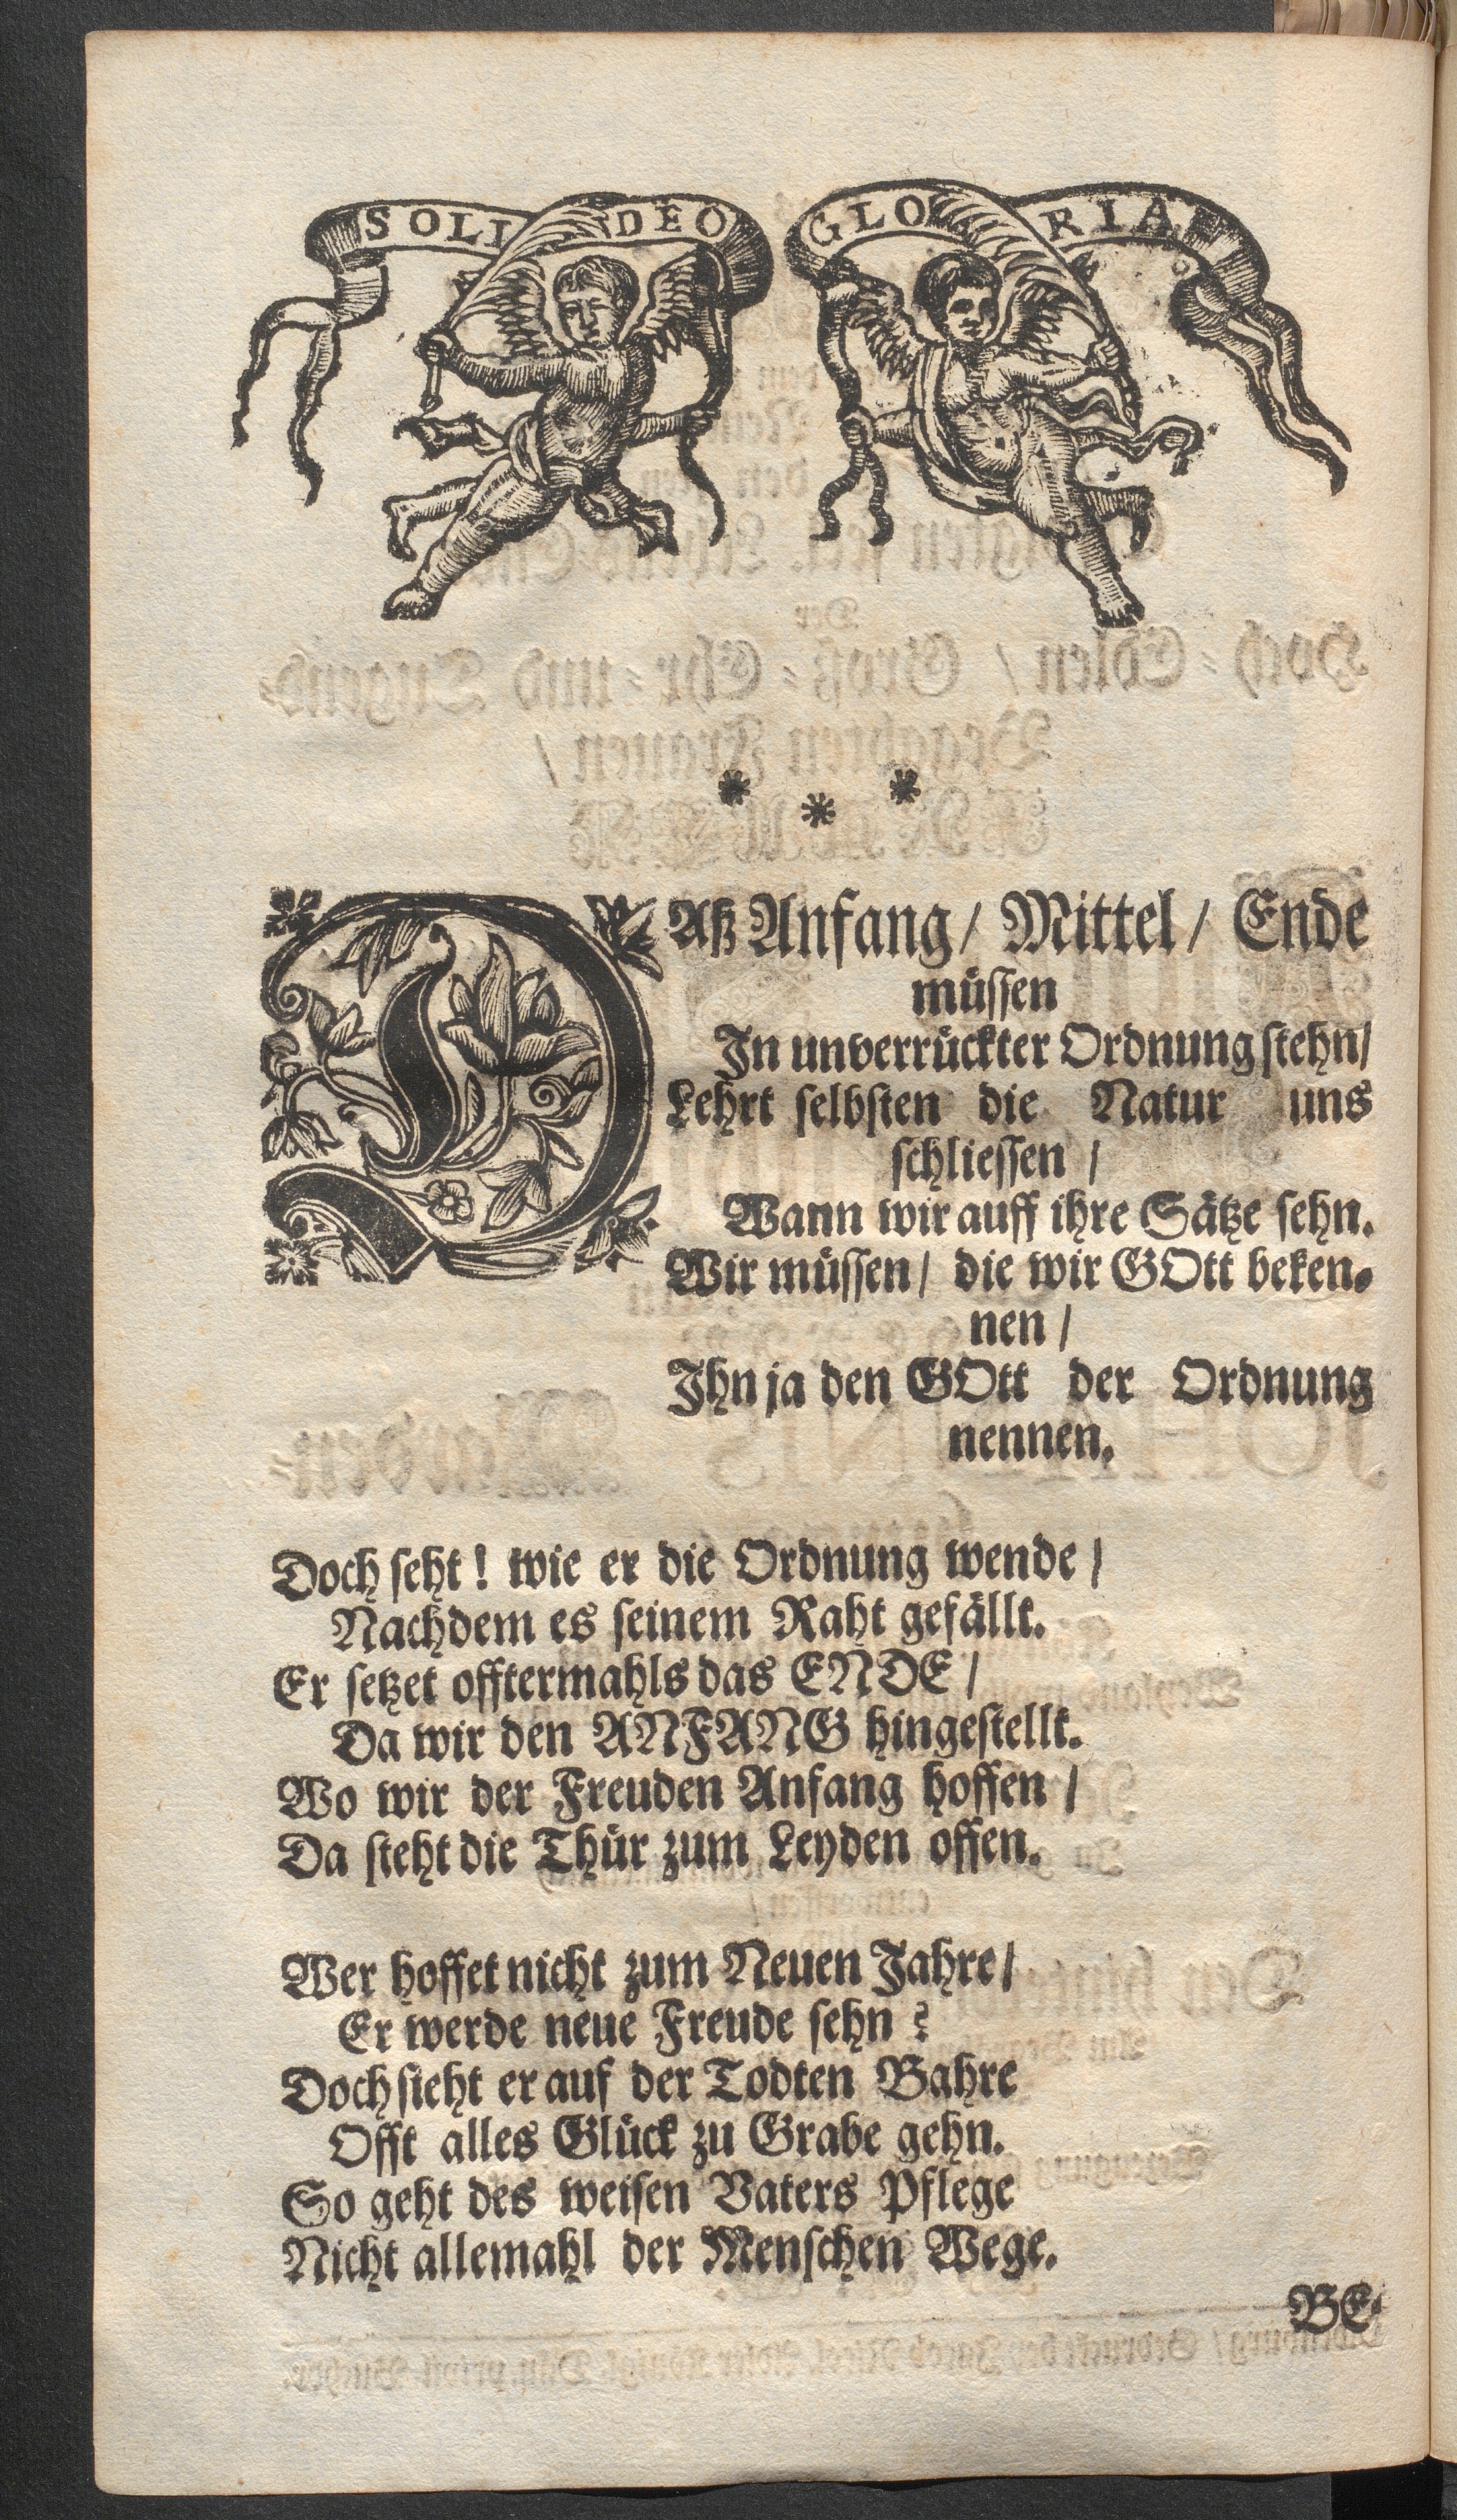 SOLI DEO GLORIA
* * *
DAß Anfang/ Mittel/ Ende
müssen
In unverrückter Ordnung stehn/
Lehrt selbsten die Natur uns
schliessen /
Wann wir auff ihre Sätze sehn.
Wir müssen/ die wir GOtt beken-
nen /
Ihn ja den GOtt der Ordnung
nennen.
Doch seht! wie er die Ordnung wende /
Nachdem es seinem Raht gefällt.
Er setzet offtermahls das ENDE /
Da wir den ANFANG hingestellt.
Wo wir der Freuden Anfang hoffen /
Da steht die Thür zum Leyden offen.
Wer hoffet nicht zum Neuen Jahre/
Er werde neue Freude sehn?
Doch sieht er auf der Todten Bahre
Offt alles Glück zu Grabe gehn.
So geht des weisen Vaters Pflege
Nicht allemahl der Menschen Wege.
BE-